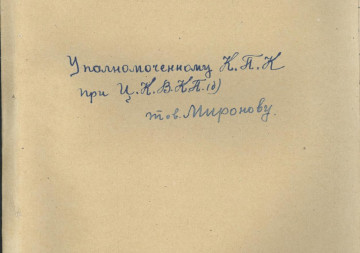 Уполномоченному К.П.К
при Ц.К.В.КП.(б)
тов. Миронову.